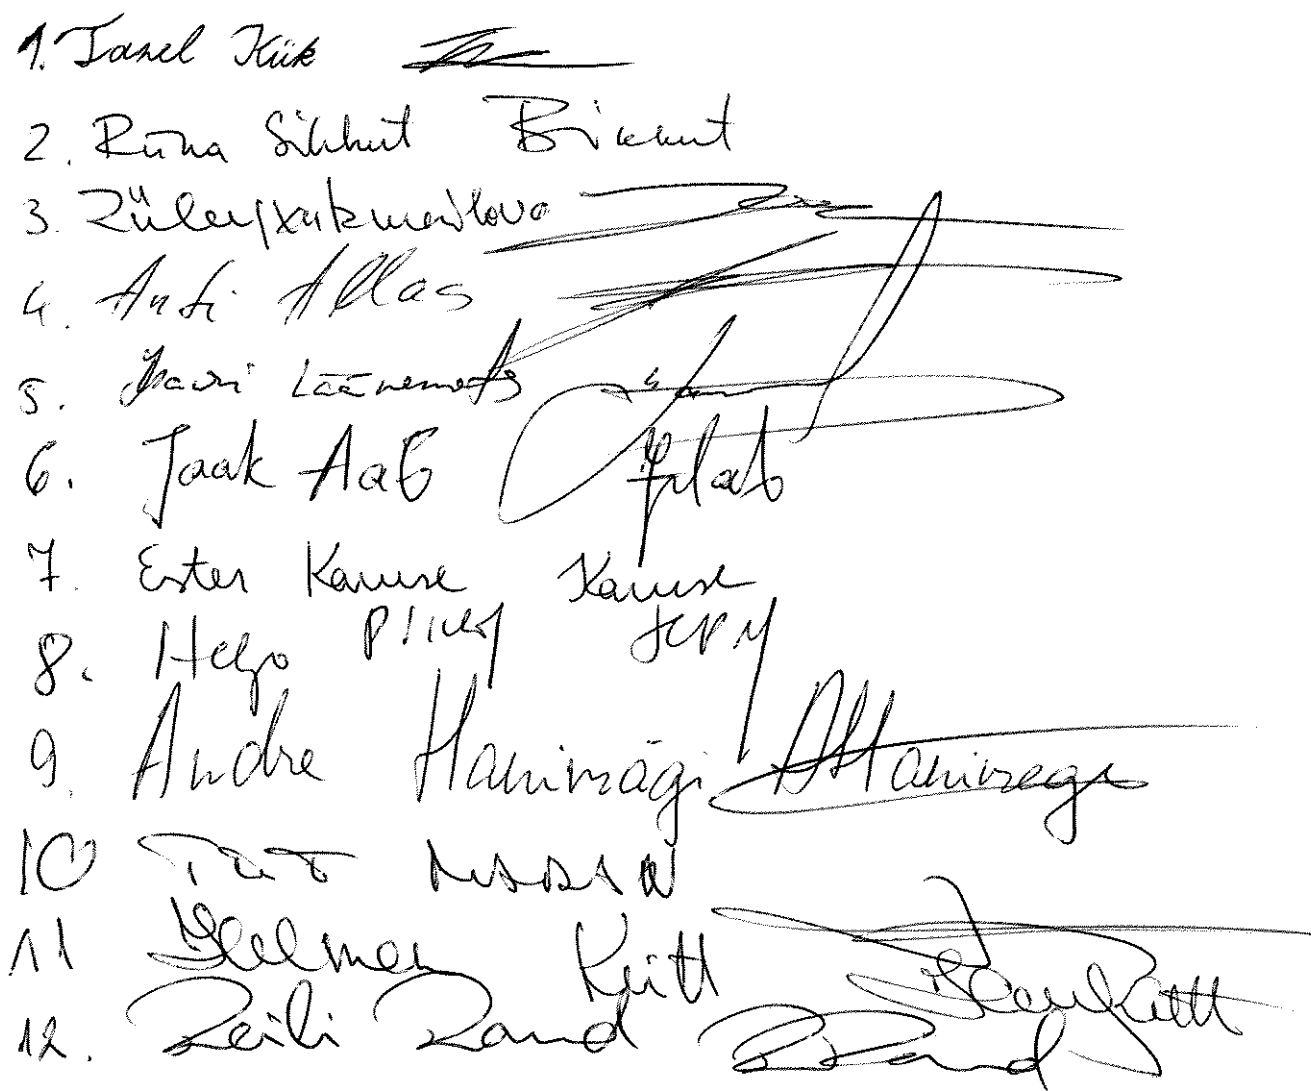 1. Tanel Kiik
2. Riina Sikkut
3. Züleyxa Izmailova
4. Anti Allas
5. Lauri Läänemets
6. Jaak Aab
7. Ester Karuse Karuse
8. Heljo Pikhof
9. Andre Hanimägi AHanimägi
10
11 Helmen Kütt
12. Reili Rand RRand